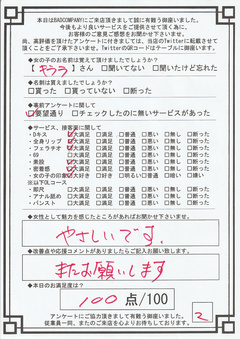 本日はBADCOMPANYにご来店頂きまして誠に有難う御座いました。
今後もより良いサービスをご提供して頂く為に、
お客様のご意見ご感想をお聞かせ下さいませ。
尚、高評価を頂けたアンケートに付きましては、当店のTwitterに転載させて
頂くことをご了承下さいませ。TwitterのQRコードはテーブルに御座います。
◆女の子のお名前は覚えて頂けましたでしょうか?
【 キララ 】さん □聞いてない □聞いたけど忘れた
◆名刺は貰えましたでしょうか?
□貰った □貰っていない □断った
◆事前アンケートに関して
□要望通り □チェックしたのに無いサービスがあった
◆サービス、接客面に関して
・Dキス □大満足 □満足 □普通 □悪い □無し □断った
・全身リップ □大満足 □満足 □普通 □悪い □無し □断った
・フェラチオ □大満足 □満足 □普通 □悪い □無し □断った
・69 □大満足 □満足 □普通 □悪い □無し □断った
・素股 □大満足 □満足 □普通 □悪い □無し □断った
・密着感 □大満足 □満足 □普通 □悪い □無し □断った
・女の子の印象 □大好き □好き □普通 □明るい □暗い □嫌い
※以下OLコース
・即尺 □大満足 □満足 □普通 □悪い □無し □断った
・アナル舐め □大満足 □満足 □普通 □悪い □無し □断った
・パンスト □大満足 □満足 □普通 □悪い □無し □断った
◆女性として魅力を感じたところがあればお聞かせ下さいませ。
やさしいです。
◆改善点や応援コメントがありましたらご記入お願い致します。
またお願いします
◆本日のお満足度は?
100 点/100
アンケートにご協力頂きまして有難う御座いました。
従業員一同、またのご来店を心よりお待ちしております。
2